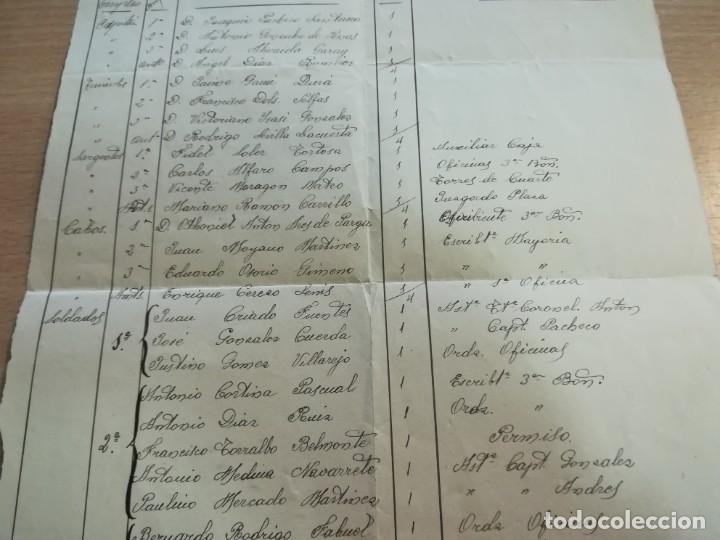 Empleos
1º D. Joaquin Pacheco
" 2º D. Antonio Gonzalez de
" 3º D. Luis Almeida Garay
" D. Angel Diaz
Tenientes 1º D. Jaime Dura
" 2º D. Francisco Dols
" 3º D. Victoriano Gonzalez
" D. Rodrigo Sevilla Lacuesta
Sargentos 1º Fidel Soler Tortosa 1 Auxiliar Caja
" 2º Carlos Alfaro Campos 1 Oficinas 3er Bón.
" 3º Vicente Maragon Mateo 1 Torres de Cuarte
" Mariano Ramon Carrillo 1 Juzgado Plaza
Cabos. 1º D. Othoniel Anton Ares de Parga 1 3er Bón.
" 2º Juan Moyano Martinez 1 Escribte. Mayoria
" 3º Eduardo Osorio Gimeno 1 " "
" Enrique Cerezo 1 " 1ª Oficina
Soldados 1ª Juan Criado Fuentes 1 Astª Coronel Anton
José Gonzalez Cuerda 1 " Capt. Pacheco
Justino Gomez Villarejo 1 Ordz. Oficinas
2ª Antonio Cortina Pascual 1 Escribte. 3er Bón.
Antonio Diaz Ruiz 1 Ordz. "
Francisco Torralbo Belmonte 1 Permiso.
Antonio Medina Navarrete 1 Astª Capt. Gonzalez
Paulino Mercado Martinez 1 " " Andres
Bernardo Rodrigo 1 Ordz
todocoleccion.net